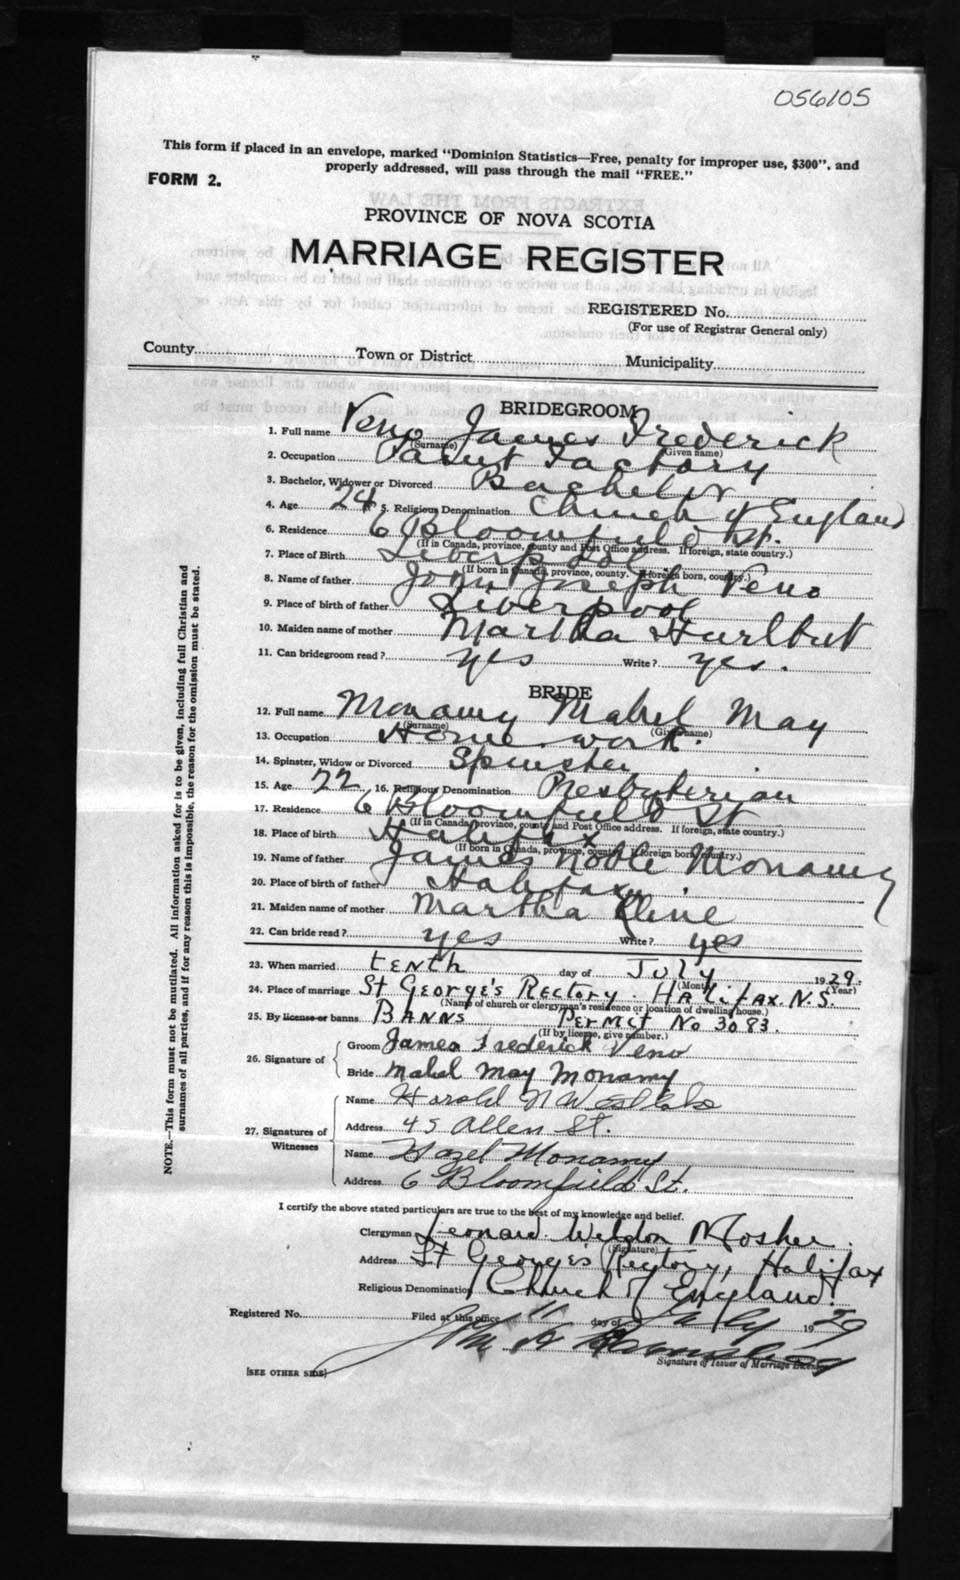 056105
This form if placed in an envelope, marked "Dominion Statistics—Free, penalty for improper use, $300", and
properly addressed, will pass through the mail "FREE."
FORM 2.
PROVINCE OF NOVA SCOTIA
MARRIAGE REGISTER
REGISTERED No.
(For use of Registrar General only)
County Town or District Municipality
BRIDEGROOM
1. Full name Veno James Frederick
(Surname) (Given name)
2. Occupation Paint Factory
3. Bachelor, Widower or Divorced Bachelor
4. Age 24 5. Religious Denomination Church of England
6. Residence 6 Bloomfield St.
(If in Canada, province, county and Post Office address. If foreign, state country.)
7. Place of Birth Liverpool
(If born in Canada, province, county. If foreign born, country.)
8. Name of father John Joseph Veno
9. Place of birth of father Liverpool
10. Maiden name of mother Martha Hurlbut
11. Can bridegroom read? yes Write? yes.
BRIDE
12. Full name Monamy Mabel May
(Surname) (Given name)
13. Occupation Home work.
14. Spinster, Widow or Divorced Spinster
15. Age 22 16. Religious Denomination Presbyterian
17. Residence 6 Bloomfield St
(If in Canada, province, county and Post Office address. If foreign, state country.)
18. Place of birth Halifax
(If born in Canada, province, county. If foreign born, country.)
19. Name of father James Noble Monamy
20. Place of birth of father Halifax
21. Maiden name of mother Martha Kline
22. Can bride read? yes Write? yes
23. When married tenth day of July 1929.
(Month) (Year)
24. Place of marriage St George's Rectory. Halifax. N.S.
(Name of church or clergyman's residence or location of dwelling house.)
25. By license or banns Banns Permit No 3083.
(If by license, give number.)
26. Signature of
Groom James Frederick Veno
Bride Mabel May Monamy
27. Signatures of Witnesses
Name Harold N
Address 45 Allen St.
Name Hazel Monamy
Address 6 Bloomfield St.
I certify the above stated particulars are true to the best of my knowledge and belief.
Clergyman Leonard Weldon Mosher.
(Signature)
Address St George's Rectory, Halifax
Religious Denomination Church of England.
Registered No. Filed at this office 11 day of July 1929
Signature of Issuer of Marriage License
[SEE OTHER SIDE]
NOTE.—This form must not be mutilated. All information asked for is to be given, including full Christian and
surnames of all parties, and if for any reason this is impossible, the reason for the omission must be stated.